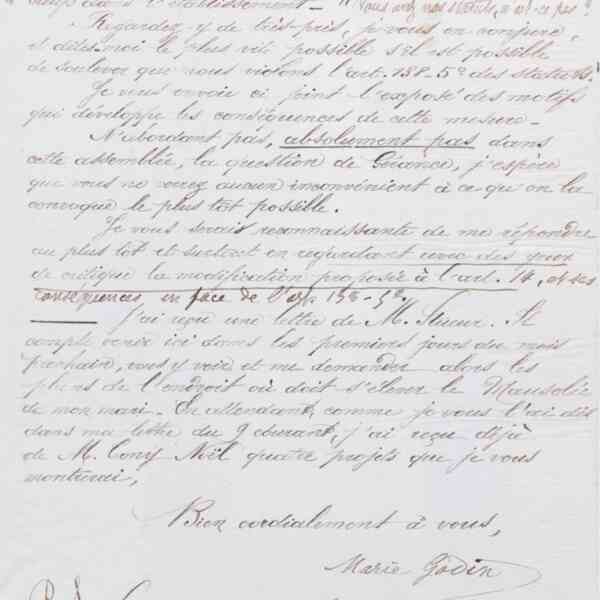 l'établissement — " Vous avez nos statuts, n'est-ce pas?
Regardez-y de très-près, je vous en conjure,
et dites-moi le plus vite possible s'il est possible
de soulever que nous violons l'art. 138-5° des statuts.
Je vous envoie ci joint l'exposé des motifs
qui développe les conséquences de cette mesure —
N'abordant pas, absolument pas dans
cette assemblée, la question de Gérance, j'espère
que vous ne verrez aucun inconvénient à ce qu'on la
convoque le plus tôt possible.
Je vous serais reconnaissante de me répondre
au plus tôt et surtout en regardant avec des yeux
de critique la modification proposée à l'art. 14, et ses
conséquences en face de l'art. 138-5°.
J'ai reçu une lettre de M. Il
compte venir ici dans les premiers jours du mois
prochain, vous y voir et me demander alors les
plans de l'endroit où doit s'élever le Mausolée
de mon mari. En attendant, comme je vous l'ai dit
dans ma lettre du 9 courant, j'ai reçu déjà
de M. Tony Noël quatre projets que je vous
montrerai,
Bien cordialement à vous,
Marie Godin